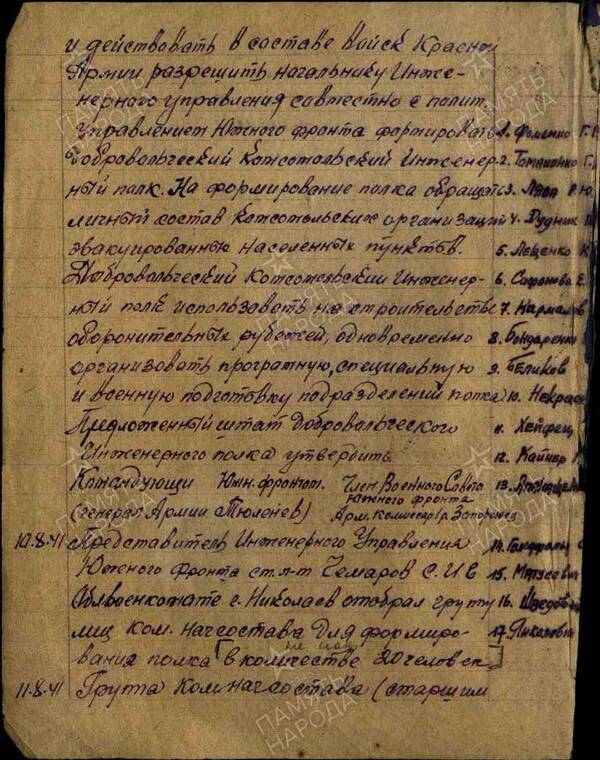 и действовать в составе войск Красной
Армии разрешить начальнику Инже-
нерного управления совместно с полит.
управлением Южного фронта формировать
Добровольческий Комсомольский Инженер-
ный полк. На формирование полка обращать
личный состав комсомольских организаций
эвакуированных населенных пунктов.
Добровольческий Комсомольский Инженер-
ный полк использовать на строительстве
оборонительных рубежей, одновременно
организовать программную, специальную
и военную подготовку подразделений полка
Предложенный штат Добровольческого
Инженерного полка утвердить
Командующий Южн. фронтом.
(генерал Армии Тюленев)
Член Военного Совета
Южного фронта
Арм. комиссар 1 р. Запорожец
10.8.41 Представитель Инженерного Управления
Южного Фронта ст. л-т Чемаров С. И. в
Облвоенкомате г. Николаев отобрал группу
лиц ком. начсостава для формиро-
вания полка [в количестве 20 человек]
11.8.41 Группа Комначсостава (старшим
1. Фоменко Г.
2. Г.
3. Ю.
4. Дудник
5. Лещенко К
6. Сафонова Е.
7.
8. Бондаренко
9. Беликов
10. Некрасо
11. Хейфец
12. Кайнер
13.
14.
15. Матусевич
16.
17. Янковский
ПАМЯТЬ
НАРОДА